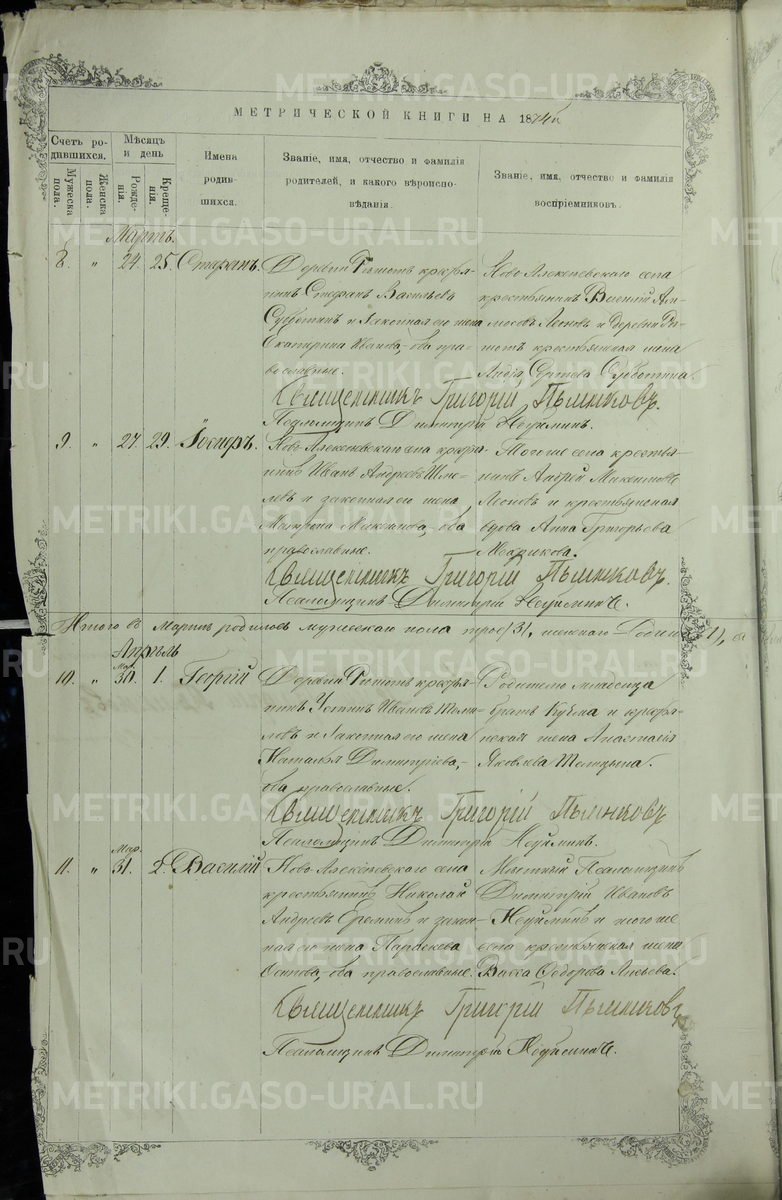 МЕТРИЧЕСКОЙ КНИГИ НА 1874 й
Счетъ ро-
дившихся.
Мужеска
пола.
Женска
пола.
Мѣсяцъ
и день
Рожде-
нія.
Креще-
нія.
Имена
родив-
шихся.
Званіе, имя, отчество и фамилія
родителей, и какого вѣроиспо-
вѣданія.
Званіе, имя, отчество и фамилія
воспріемниковъ.
Мартъ.
8. " 24. 25.
Деревни крестья-
нинъ Стефанъ Васильевъ
Субботинъ и законная его жена
Екатерина Иванова, оба пра-
вославные.
Ново Алексѣевскаго села
крестьянинъ
Леоновъ и деревни
крестьянская жена
Сергѣева Субботина.
Священникъ Григорій Пьянковъ.
Псаломщикъ Димитрій Неуйминъ.
9. " 27. 29.
Ново Алексѣевскаго села крестья-
нинъ Иванъ Андреевъ
и законная его жена
оба
православные.
Тогоже села крестья-
нинъ Андрей
Леоновъ и крестьянская
вдова Анна Григорьева
Священникъ Григорій Пьянковъ.
Псаломщикъ Димитрій Неуйминъ.
Итого въ Мартѣ родилось мужескаго пола трое (3), женскаго
Апрѣль
10. " Мар. 30. 1. Георгій
Деревни крестья-
нинъ Устинъ Ивановъ
и законная его жена
Наталья Димитріева,
оба православные.
Родителю младенца
братъ Кузьма и крестья-
нская жена Анастасія
Яковлева
Священникъ Григорій Пьянковъ
Псаломщикъ Димитрій Неуйминъ.
11. " Мар. 31. 2. Василій
Ново Алексѣевскаго села
крестьянинъ Николай
Андреевъ Ереминъ и закон-
ная его жена Параскева
Осипова, оба православные.
Мѣстный Псаломщикъ
Димитрій Ивановъ
Неуйминъ и тогоже
села крестьянская жена
Васса Ѳедорова
Священникъ Григорій Пьянковъ
Псаломщикъ Димитрій Неуйминъ.
METRIKI.GASO-URAL.RU